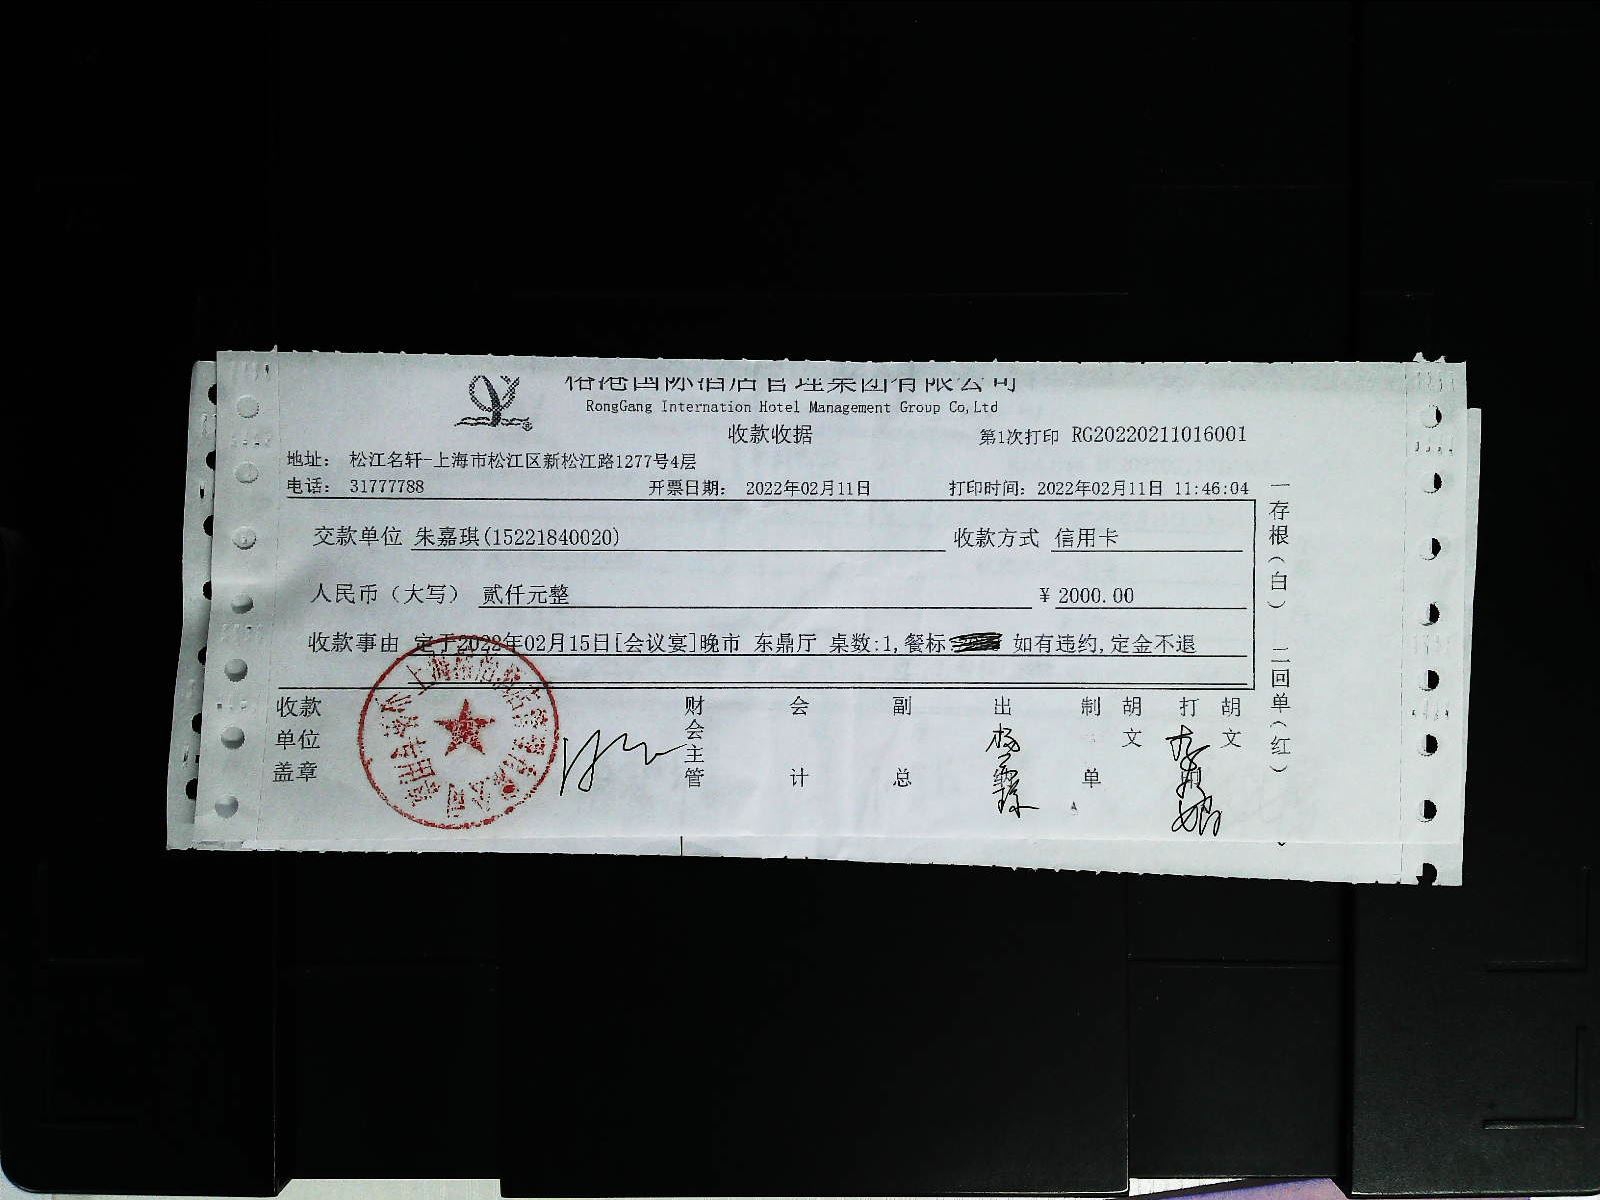 榕港国际酒店管理集团有限公司
RongGang Internation Hotel Management Group Co,Ltd
收款收据
第1次打印 RG20220211016001
地址： 松江名轩-上海市松江区新松江路1277号4层
电话： 31777788 开票日期： 2022年02月11日 打印时间：2022年02月11日 11:46:04
交款单位 朱嘉琪(15221840020) 收款方式 信用卡
人民币（大写） 贰仟元整 ￥2000.00
收款事由 定于2022年02月15日[会议宴]晚市 东鼎厅 桌数:1,餐标 如有违约,定金不退
收款单位盖章 财会主管 会计 副总 出 制单 胡文 打 胡文
杨霖
一存根（白） 二回单（红）